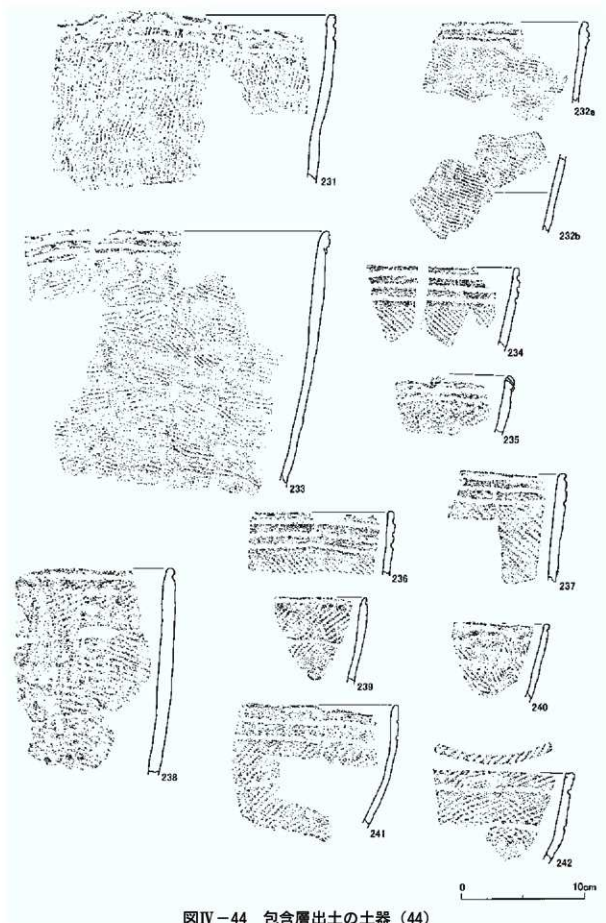 231
232a
232b
233
234
235
236
237
238
239
240
241
242
0 10cm
図Ⅳ-44 包含層出土の土器（44）